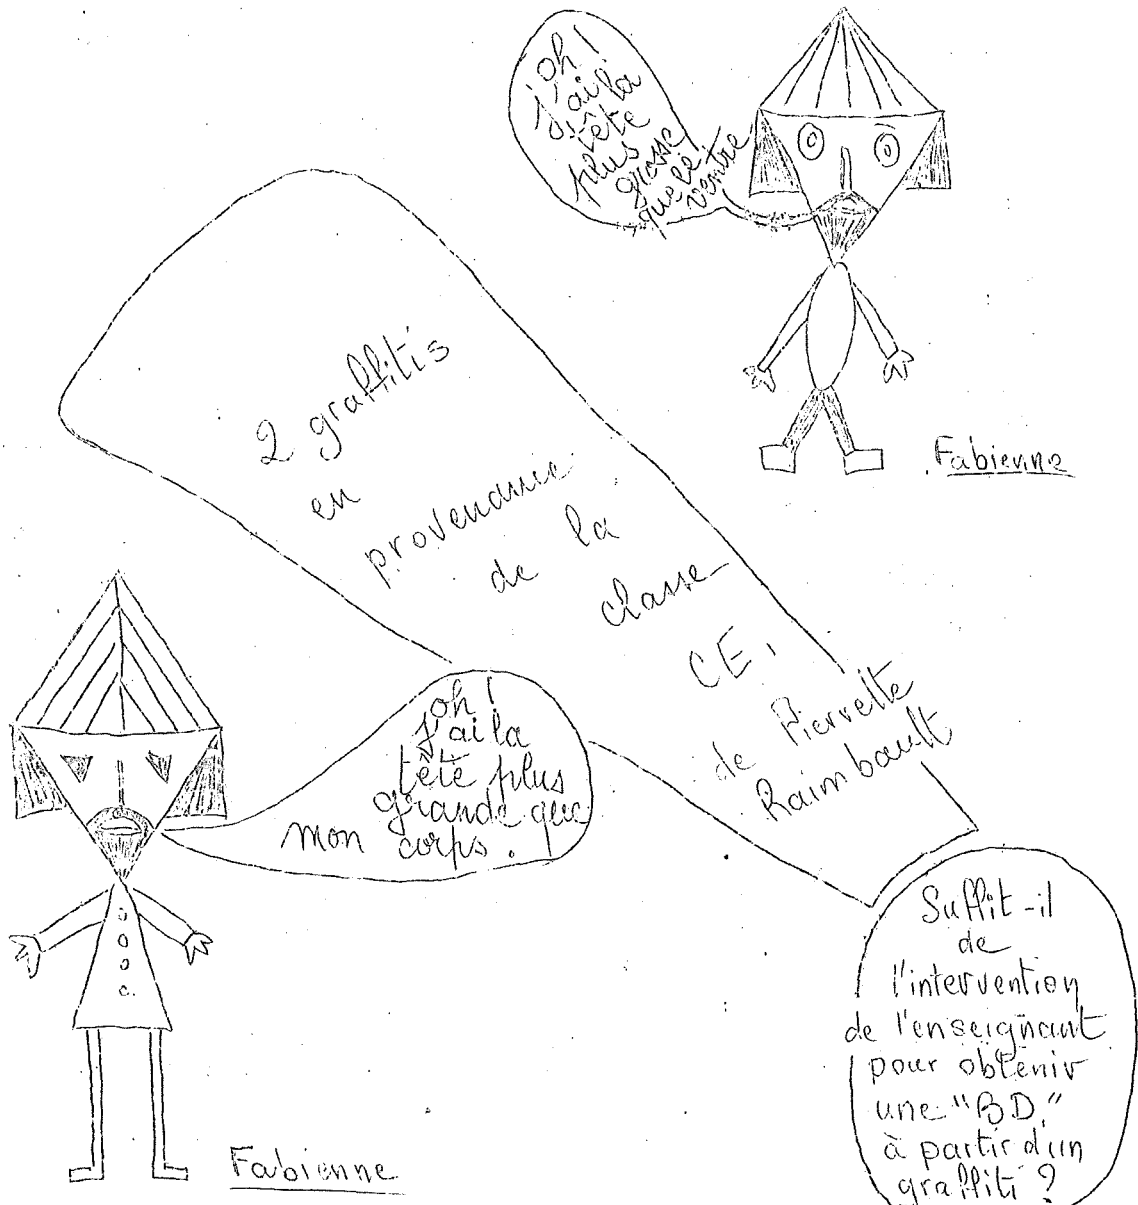 oh !
j'ai la
tête
plus
grosse
que le
ventre
Fabienne
2 graffitis
en
provenance
de la
classe
CE1
de Pierrette
Raimbault
oh !
j'ai la
tête plus
grande que
mon corps.
Fabienne
Suffit-il
de
l'intervention
de l'enseignant
pour obtenir
une "BD"
à partir d'un
graffiti ?